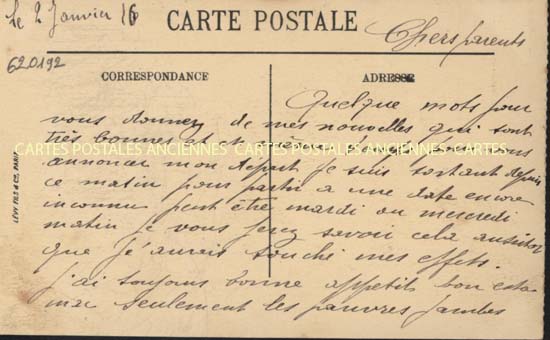 le 2 Janvier 16
CARTE POSTALE
Chers parents
620192
CORRESPONDANCE
ADRESSE
Quelque mots pour
vous donner de mes nouvelles qui sont
très bonnes et je vous
CARTES POSTALES ANCIENNES CARTES POSTALES ANCIENNES CARTES POSTALES ANCIENNES
annoncer mon départ je suis sortant depuis
ce matin pour partir a une date encore
inconnu peut être mardi ou mercredi
matin je vous ferez savoir cela aussitot
que j'aurais touché mes effets.
j'ai toujours bonne appetit bon esto
mac seulement les pauvres jambes
LÉVY FILS & Cie, PARIS